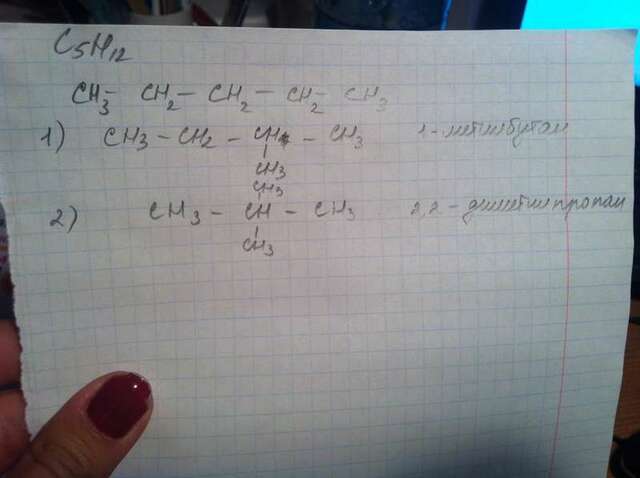 C5H12
CH3 - CH2 - CH2 - CH2 CH3
1) CH3 - CH2 - CH - CH3 1-метилбутан
CH3
CH3
2) CH3 - CH - CH3 2,2-диметилпропан
CH3